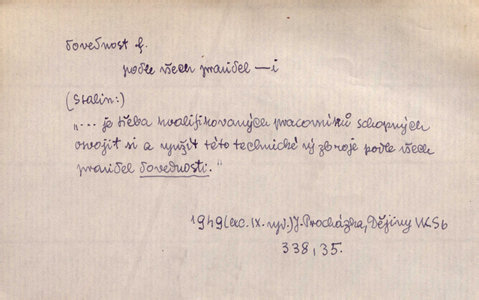 dovednost f.
podle všech pravidel —i
(Stalin:)
"... je třeba kvalifikovaných pracovníků schopných
osvojit si a využít této technické výzbroje podle všech
pravidel dovednosti."
1949 (ac. IX. vyd.) J. Procházka, Dějiny VKSb
338, 35.